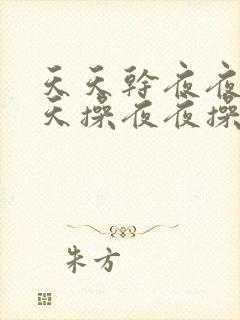 天天幹夜夜
天操夜夜操
朱方